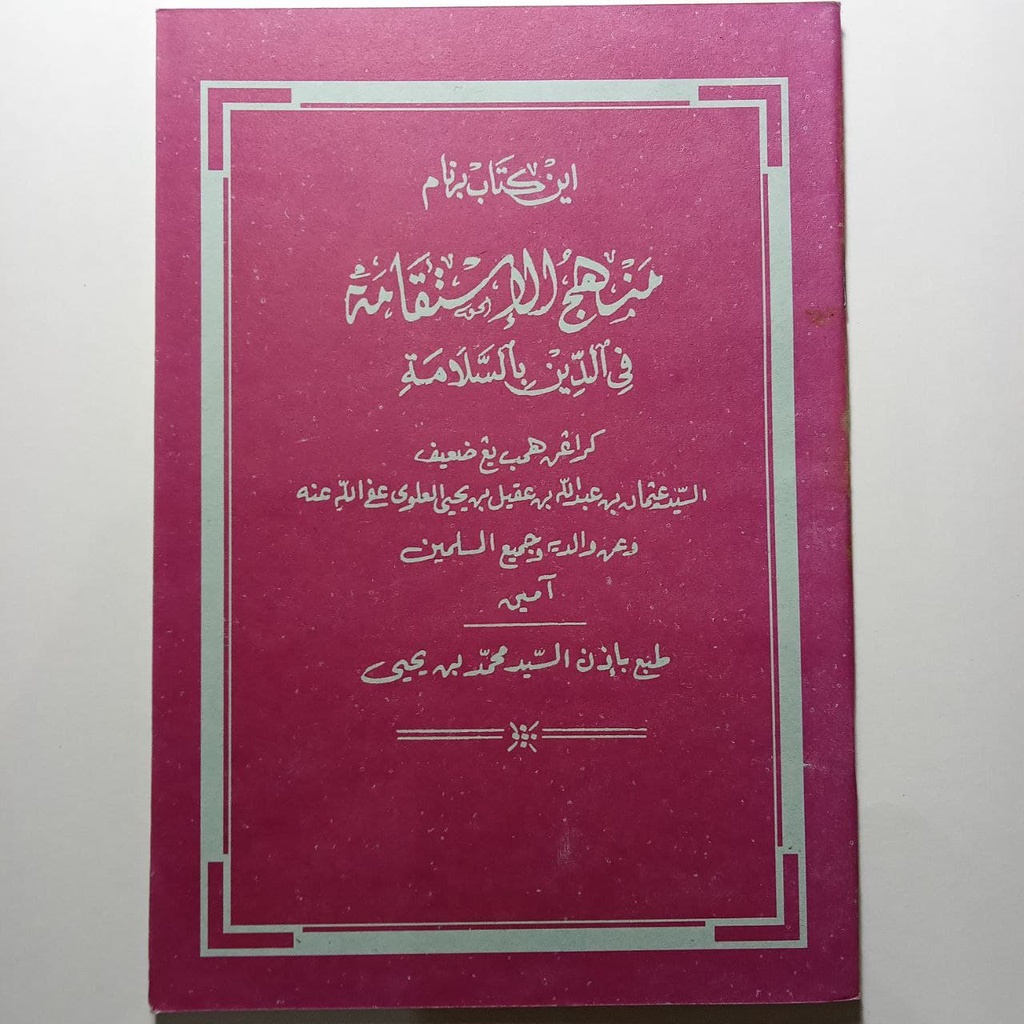 اين كتاب برنام
مَنْهَجُ الْإِسْتِقَامَةِ
فِي الدِّيْنِ بِالسَّلَامَةِ
كراڠن همب يڠ ضعيف
السيّد عثمان بن عبدالله بن عقيل بن يحيى العلوى عفى الله عنه
وعن والديه وجميع المسلمين
آمين
طبع بإذن السيّد محمّد بن يحيى